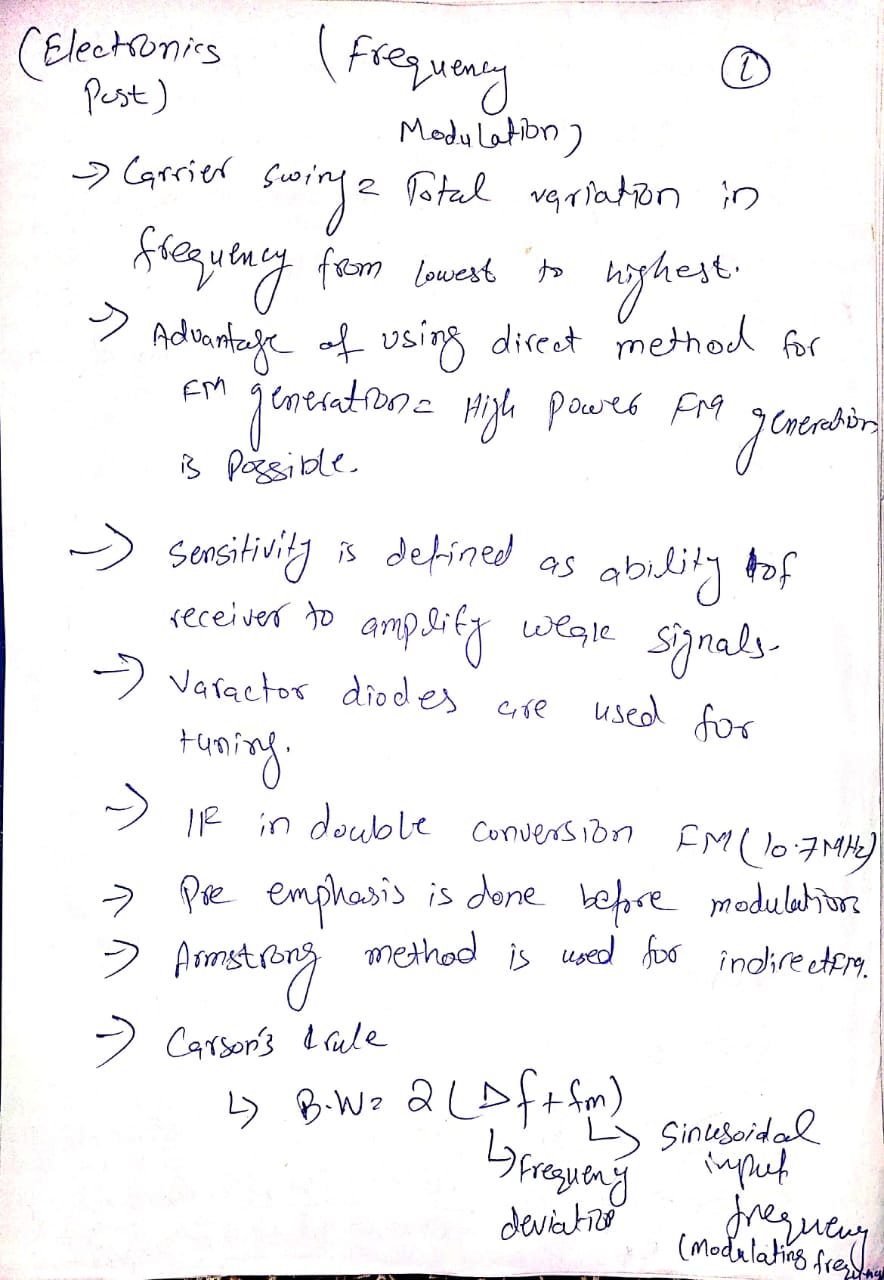 (Electronics ( Frequency ①
Post) Modulation)
→ Carrier swing = Total variation in
frequency from lowest to highest.
→ Advantage of using direct method for
FM generation = High power FM generation
is possible.
→ Sensitivity is defined as ability of
receiver to amplify weak signals.
→ Varactor diodes are used for
tuning.
→ IF in double conversion FM (10.7MHz)
→ Pre emphasis is done before modulation
→ Armstrong method is used for indirect FM.
→ Carson's rule
↳ B.W = 2 (Δf + fm)
↳ Sinusoidal
↳ Frequeny input
deviation frequency
(modulating frequency